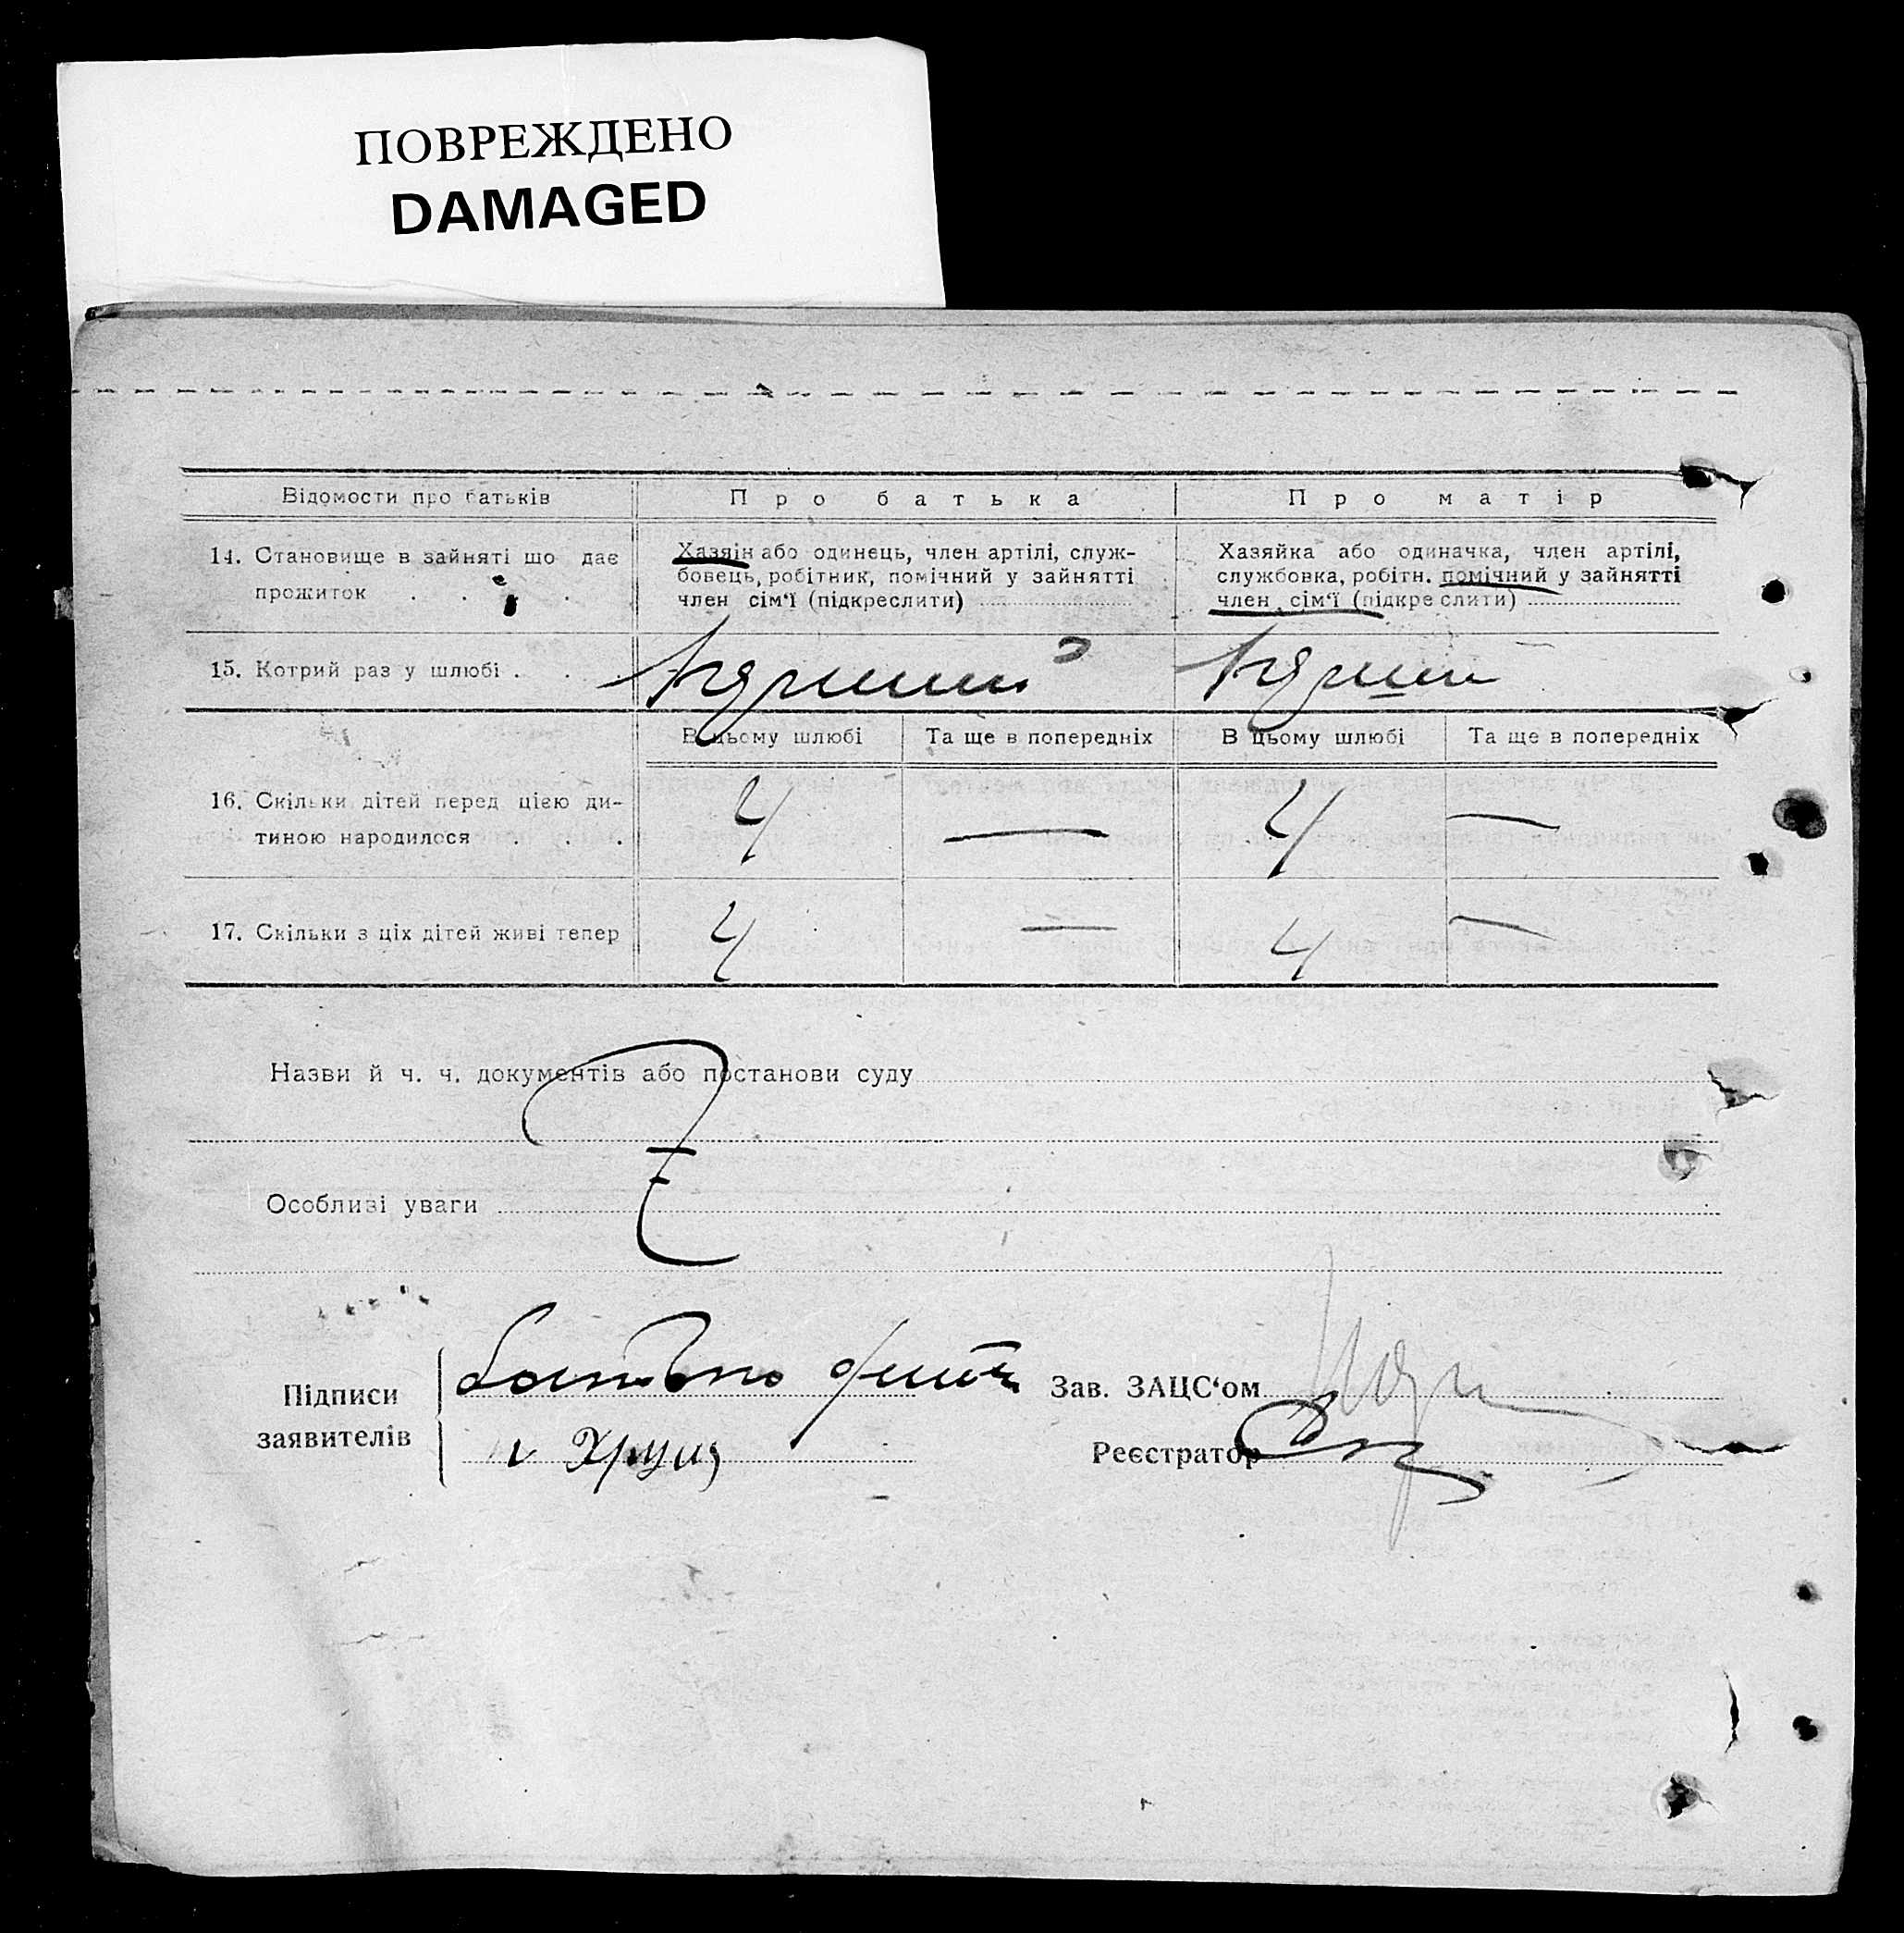 ПОВРЕЖДЕНО
DAMAGED
Відомости про батьків
Про батька
Про матір
14. Становище в зайняті що дає
прожиток . . . .
Хазяін або одинець, член артілі, служ-
бовець, робітник, помічний у зайнятті
член сім‘ї (підкреслити)
Хазяйка або одиначка, член артілі,
службовка, робітн. помічний у зайнятті
член сім‘ї (підкреслити)
15. Котрий раз у шлюбі . .
В цьому шлюбі
Та ще в попередніх
В цьому шлюбі
Та ще в попередніх
16. Скільки дітей перед цією ди-
тиною народилося . . .
4 — 4 —
17. Скільки з ціх дітей живі тепер
4 — 4 —
Назви й ч. ч. документів або постанови суду
Особливі уваги
Підписи
заявителів
Зав. ЗАЦС‘ом
Реєстратор